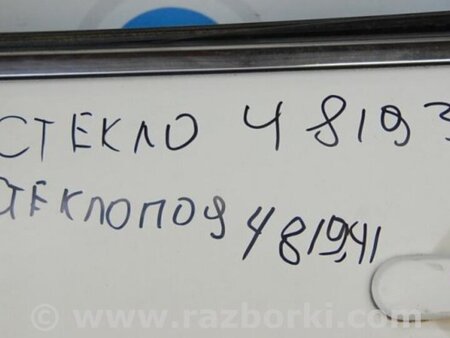 СТЕКЛО 48193
СТЕКЛОПОД 481941
© www.razborki.com